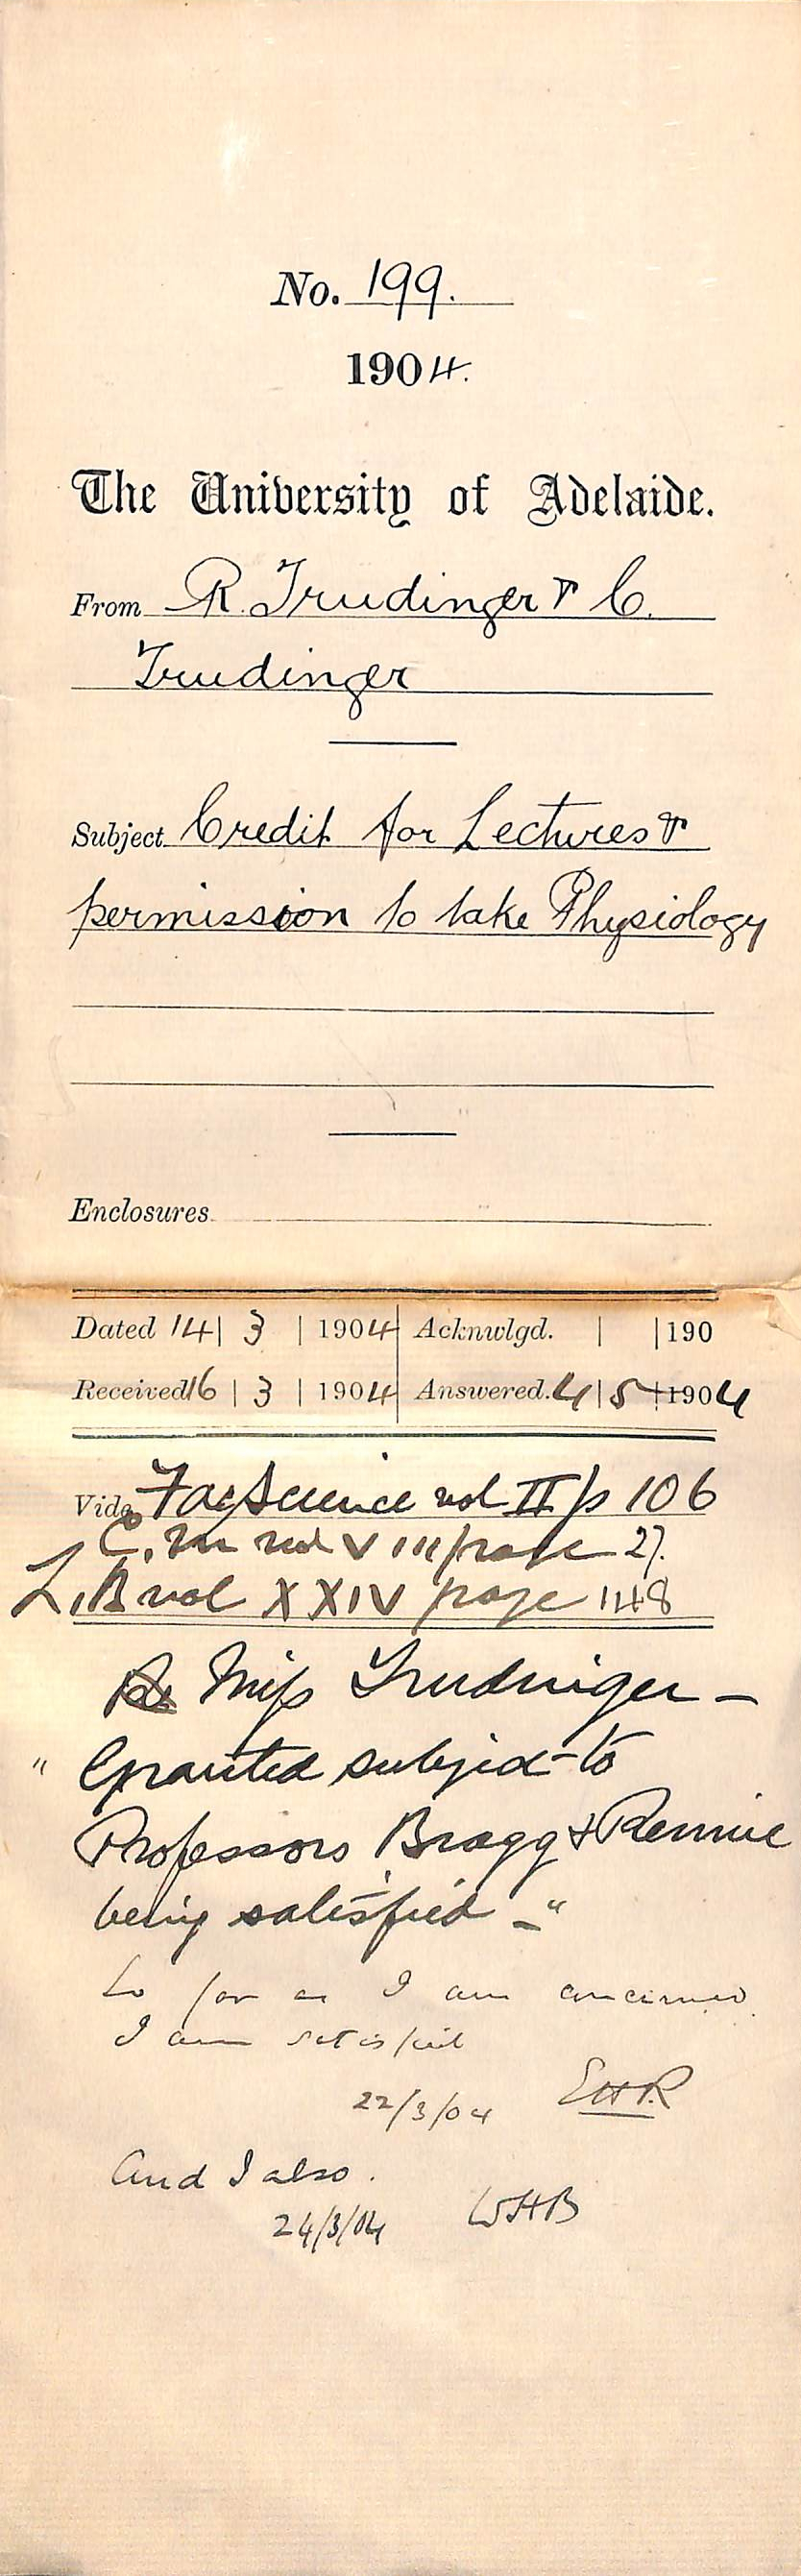 No. 199.
1904.
The University of Adelaide.
From R. Trudinger & C.
Trudinger
Subject Credit for Lectures &
permission to take Physiology
Enclosures
Dated 14 | 3 | 1904 Acknwlgd. | | 190
Received 16 | 3 | 1904 Answered. 4 | 5 | 1904
Vide Fac Science vol II p 106
C. M vol VIII page 27.
L.B vol XXIV page 148
Re Miss Trudinger –
" Granted subject to
Professors Bragg & Rennie
being satisfied – "
So far as I am concerned
I am satisfied
22/3/04 EHR
And I also.
24/3/04 WHB